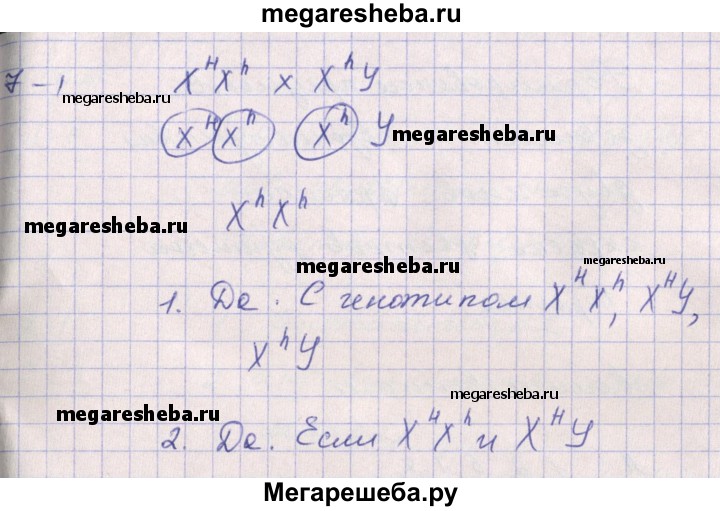 megaresheba.ru
7-1 X^H X^h x X^h Y
megaresheba.ru
X^H X^h X^h Y
megaresheba.ru
megaresheba.ru
X^h X^h
megaresheba.ru
megaresheba.ru
1. Да. С генотипом X^H X^h, X^H Y,
X^h Y
megaresheba.ru
megaresheba.ru
2. Да. Если X^H X^h и X^H Y
Мегарешеба.ру